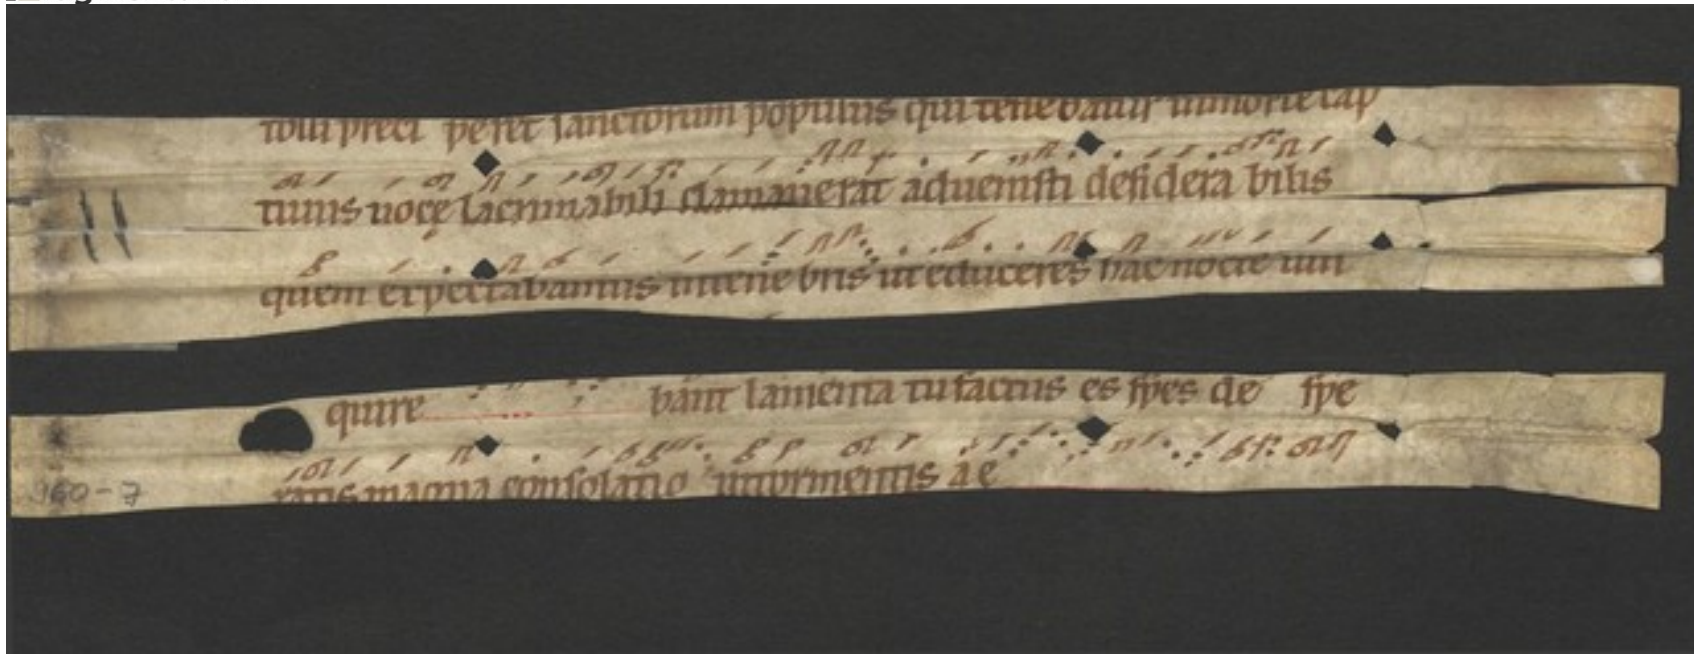 tolli preci peret sanctorum populus qui tenebatur in morte cap
tiuus uocę lacrimabili clamauerat aduenisti desidera bilis
quem expectabamus in tene bris ut educeres hac nocte uin
quire bant lamenta tu factus es spes de spe
ratis magna consolatio in tormentis a e
960-7